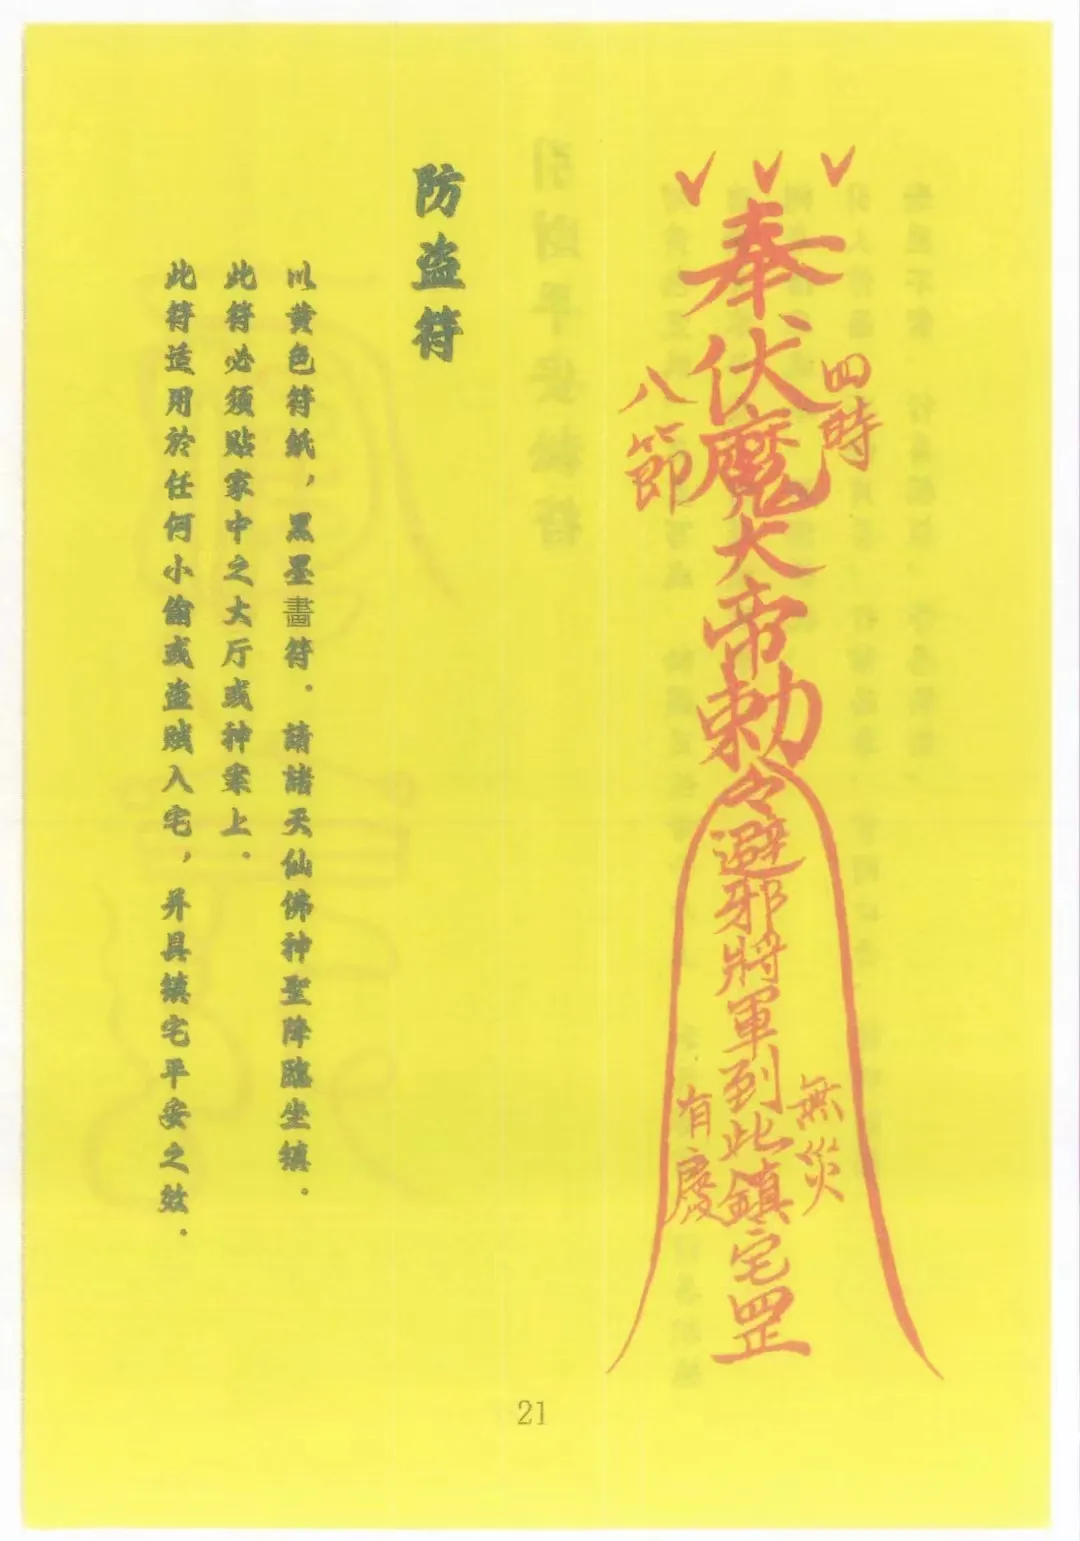 奉伏魔大帝敕令避邪將軍到此鎮宅罡
四時
八節
無災
有慶
防盜符
以黄色符紙，黑墨畫符．請諸天仙佛神聖降臨坐鎮．
此符必須貼家中之大厅或神案上．
此符适用於任何小偷或盗贼入宅，并具镇宅平安之效．
21